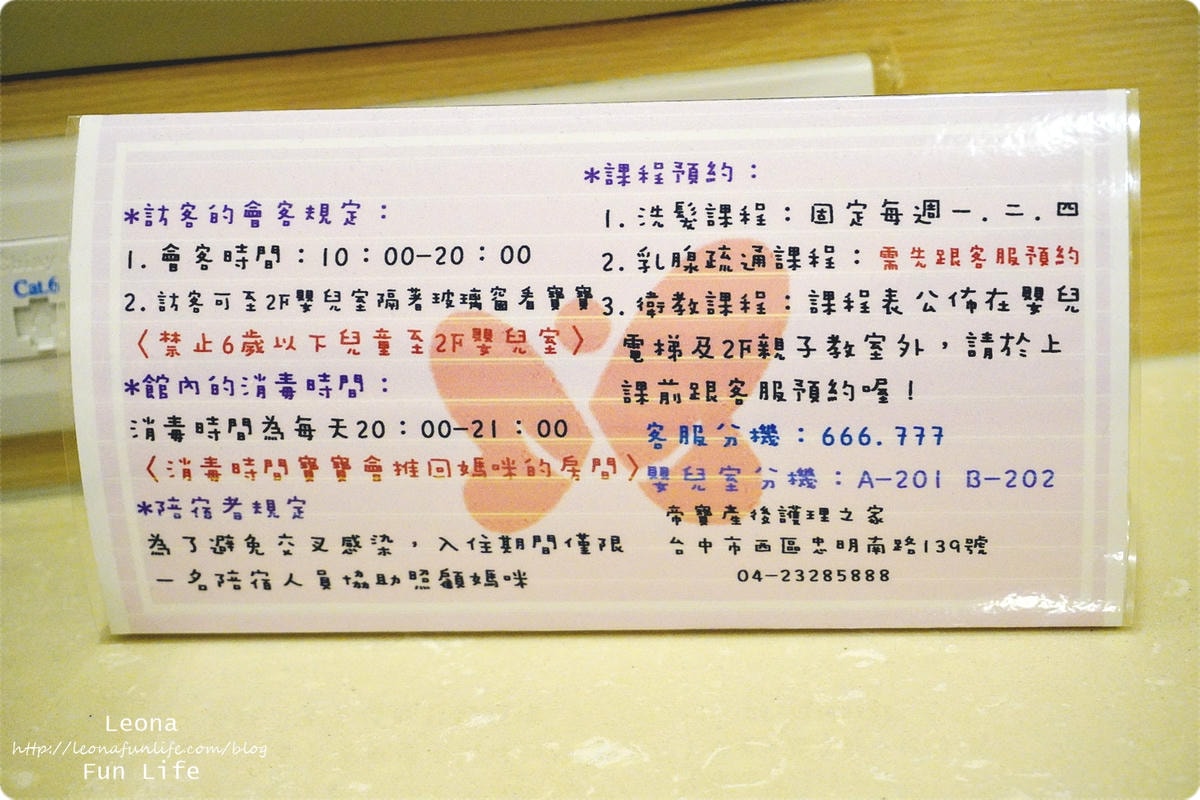 *訪客的會客規定：
1. 會客時間：10：00-20：00
2. 訪客可至2F嬰兒室隔著玻璃窗看寶寶
〈禁止6歲以下兒童至2F嬰兒室〉
*館內的消毒時間：
消毒時間為每天20：00-21：00
〈消毒時間寶寶會推回媽咪的房間〉
*陪宿者規定
為了避免交叉感染，入住期間僅限
一名陪宿人員協助照顧媽咪
*課程預約：
1. 洗髮課程：固定每週一.二.四
2. 乳腺疏通課程：需先跟客服預約
3. 衛教課程：課程表公佈在嬰兒
電梯及2F親子教室外，請於上
課前跟客服預約喔！
客服分機：666.777
嬰兒室分機：A-201 B-202
帝寶產後護理之家
台中市西區忠明南路139號
04-23285888
Cat.6
Leona
http://leonafunlife.com/blog
Fun Life